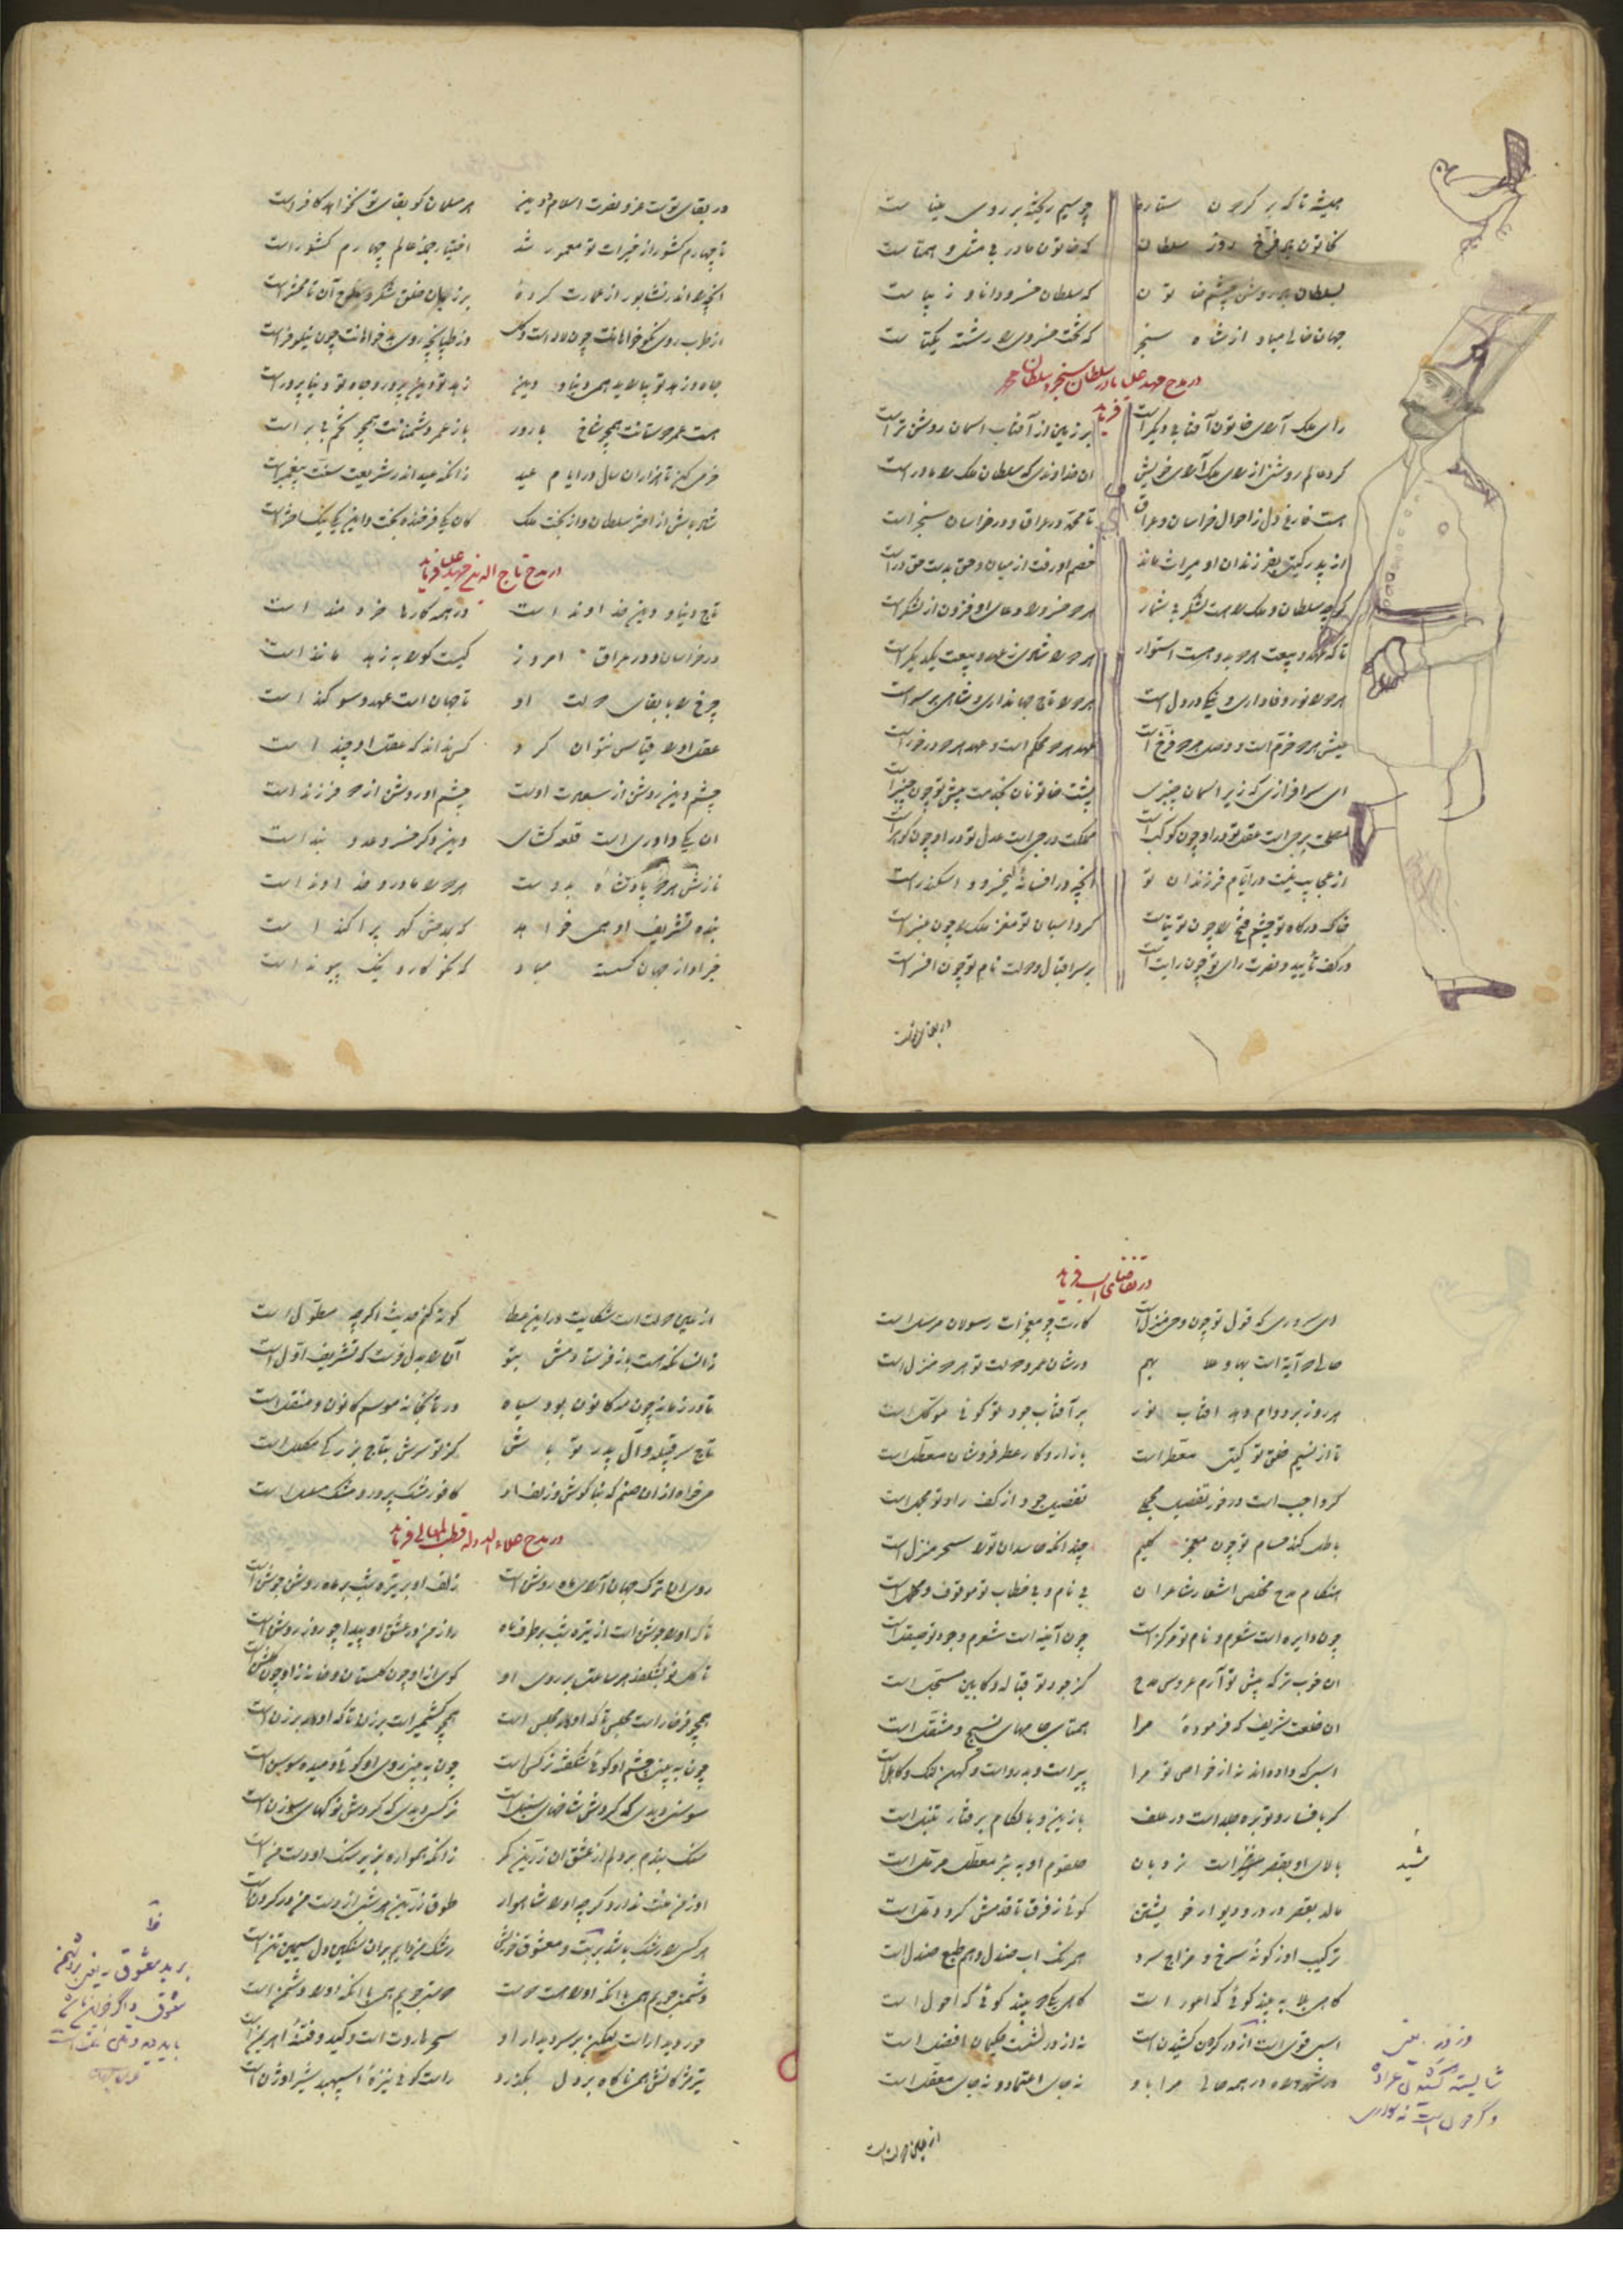 همیشه تا که بر گردون ستاره چو سیم ریخته بر روی مینا ست
بخاتون باد فرخ روز سلطان که خاتون مادر بی مثل و همتا ست
بسلطان باد روشن چشم خاتون که سلطان خسرو دانا و زیبا ست
جهان خالی مباد از شاه سنجر که تخت خسروی را رشته یکتا ست
در مدح مهد علیا مادر سلطان سنجر و سلطان محمد فرماید
رای ملک آرای خاتون آفتابی دیگر است بر زمین از آفتاب آسمان روشن تر است
کرد عالم روشن از رای ملک آرای خویش آن خداوندی که سلطان ملک را مادر است
هست فارغ دل ز احوال خراسان و عراق تا محمد در عراق و در خراسان سنجر است
از پدر گیتی بفرزندان او میراث ماند خصم او رفت از میان و حق بدست حق ور است
گرچه سلطان و ملک را هست لشکر بی شمار هر دو خسرو را دعای او فزون از لشکر است
تا که عهد و بیعت هر دو بدو هست استوار هر دو را شادی بعهد و بیعت یکدیگر است
هر دو را نور وفاداری و نیکی در دل است هر دو را تاج جهانداری و شاهی بر سر است
عیش هر دو خرم است و وصل هر دو فرخ است عهد هر دو محکم است و عهد هر دو درخور است
ای سرافرازی که زیر آسمان چنبری پشت خاتونان بخدمت پیش تو چون چنبر است
مصلحت برجی است عقل تو در او چون کوکب است مملکت درجی است عدل تو در او چون گوهر است
از عجایب نیست در ایام فرزندان تو آنچه در افسانه کیخسرو و اسکندر است
خاک درگاه تو چشم فتح را چون توتیاست گرد اسبان تو مغز ملک را چون عنبر است
در کف تأیید و نصرت رای تو چون رایت است بر سر اقبال و دولت نام تو چون افسر است
در بقای تست
در بقای توست عز و نصرت اسلام و دین هر مسلمان کو بقای تو نخواهد کافر است
تا چهارم کشور از خیرات تو معمور شد اختیار جمله عالم چهارم کشور است
آنچه اندر نشابور از عمارت کرده بر زبان خلق شکر و مدح آن تا محشر است
از طرب روی نکوخواهانت چون لاله است وز طپانچه روی بدخواهانت چون نیلوفر است
جاه و زهد تو بیاراید همی دنیا و دین زهد تو دین پرور و جاه تو دنیا پرور است
هست عمر دوستانت همچو شاخ بارور باز عمر دشمنانت همچو تخم بی بر است
خرمی کن تا هزاران سال در ایام عید زانکه عید اندر شریعت سنت پیغمبر است
شاد باش از اختر سلطان و از بخت ملک کان یکی فرخنده بخت و این یکی نیک اختر است
در مدح تاج الدین مهد علیا فرماید
تاج دنیا و دین خداوند است در همه کارها خردمند است
در خراسان و در عراق امروز کیست کو را به زهد مانند است
چرخ را با بقای دولت او تا جهان است عهد و سوگند است
عقل او را قیاس نتوان کرد کس نداند که عقل او چند است
چشم دین روشن از سعادت اوست چشم او روشن از دو فرزند است
آن یکی داوری است قلعه گشای وین دگر خسرو عدو بند است
نازش هر دو پادشاه بدوست هر دو را مادر و خداوند است
بنده تشریف او همی خواهد که بمدحش گهر پراکند است
خیر او از جهان گسسته مباد که نکوکار و نیک پیوند است
در تقاضای اسب فرماید
ای سروری که قول تو چون وحی منزل است کارت چو معجزات رسولان مرسل است
حالی دو آیة است بها و علا بهم در شان عمر و دولت تو هر دو منزل است
هر روز بردوام دهد آفتاب نور بر آفتاب جود تو گوئی موکل است
تا از نسیم خلق تو گیتی معطر است بازار و کار عطرفروشان معطل است
گرد آجب است درخور تفصیل مجملی تفصیل جود از کف راد تو مجمل است
باطل کند حسام تو چون معجز کلیم چندانکه حاسدان تو را سحر منزل است
هنگام مدح مخلص اشعار شاعران بی نام و بی خطاب تو موقوف و مهمل است
چون دایره است شعرم و نام تو مرکز است چون آینه است شعرم و جود تو صیقل است
آن خوب تر که پیش تو آرم عروس مدح کز جود تو قباله و کابین مسجل است
آن خلعت شریف که فرموده مرا همتای جامهای نسیج و مثقل است
اسبی که داده اند نه از خواص تو مرا پیر است و بدرو است و گهن لنگ و کاهل است
گر با فسار و توبره جلد است در علف با زین و با لگام برفتار تنبل است
بالای او بقصر مشید است نردبان حلقوم او به بئر معطل مرتل است
مالد بقصر در در و دیوار خویشتن گوئی ز فرق تا قدمش گرد و دمل است
ترکیب او ز گونه سرخ و مزاج سرد همرنگ آب صندل و هم طبع صندل است
گاهی بلا به بیند گوئی که اعور است گاهی یکی دو بیند گوئی که احول است
اسبی قوی است از در گردون کشیدن است نه از در نشست حکیمان افضل است
در شهر و راه در همه حالی مرا بدو نه جای اعتماد و نه جای معول است
مشید
از در یعنی
شایسته کشیدن عراده
و گردون است نه سواری
از چنین دولت است
از چنین دولت است شکایت در این عطا کوته کنم حدیث اگرچه مطول است
زانسان که هست باز فرستادمش بتو آن را بدل فرست که تشریف اول است
تا در زمانه چون مه کانون بود سیاه در تابخانه موسم کانون و منقل است
تاج سر قبیله و آل پدر تو باش کز تو سرش بتاج بزرگی مکلل است
می خواه از آن صنم که بناگوش و زلف او کافور مشک پرور و مشک مسلسل است
در مدح علاء الدوله قطب المعالی فرماید
روی آن ترک جهان آرای ماه روشن است زلف او بر تیره شب بر ماه روشن جوشن است
تا که او را جوشن است از تیره شب بر طرف ماه راز من در عشق او پیدا چو روز روشن است
تا گل نو بشکفد هر ساعتی بر روی او کوی از او چون گلستان و خانه زو چون گلشن است
همچو فرخار است مجلس تا که او در مجلس است همچو کشمیر است برزن تا که او در برزن است
چون به بینی چشم او گوئی شکفته نرگس است چون به بینی روی او گوئی دمیده سوسن است
سوسنی دیدی که گردش شاخهای سنبل است نرگسی دیدی که گردش نوکهای سوزن است
سنگ بندم بر دلم از عشق آن زرین کمر زانکه همواره بزیر سنگ او دست من است
او ز من منت ندارد گرچه او را شاهوار طوق زرین هر شبی از دست من در گردن است
هر کسی را رشک باشد بر بت و معشوق خویش رشک من دایم بران سنگین دل سیمین تن است
دشمن جویم همی با آنکه او را هست دوست دوستی جویم همی با آنکه او را دشمن است
حور دیدار است لیکن بر سر دیدار او سحر هاروت است و کید و فتنه اهریمن است
تیر مژگانش همی ناگاه بر دل بگذرد راست گوئی نیزه اسپهبد شیر اوژن است